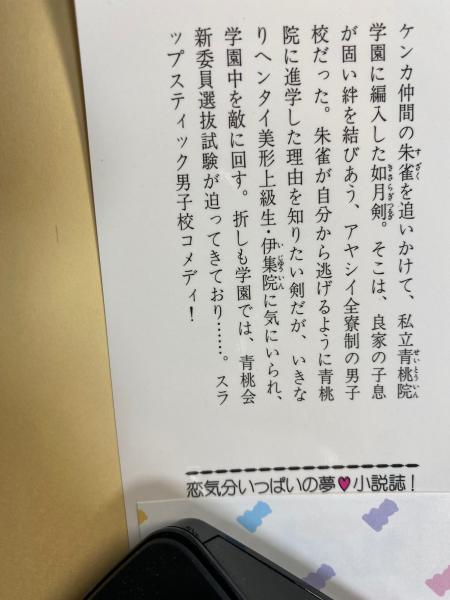 ケンカ仲間の朱雀を追いかけて、私立青桃院
学園に編入した如月剣。そこは、良家の子息
が固い絆を結びあう、アヤシイ全寮制の男子
校だった。朱雀が自分から逃げるように青桃
院に進学した理由を知りたい剣だが、いきな
りヘンタイ美形上級生・伊集院に気にいられ、
学園中を敵に回す。折しも学園では、青桃会
新委員選抜試験が迫ってきており……。スラ
ップスティック男子校コメディ！
恋気分いっぱいの夢♥小説誌！